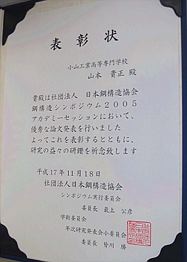 表彰状
小山工業高等専門学校
山本 貴正 殿
貴殿は社団法人 日本鋼構造協会
鋼構造シンポジウム2005
アカデミーセッションにおいて、
優秀な論文発表を行いました
よってこれを表彰するとともに、
研究の益々の研鑽を祈念致します
平成17年11月18日
社団法人 日本鋼構造協会
シンポジウム実行委員会
委員長 最上 公彦
学術委員会
年次研究発表会小委員会
委員長 皆川 勝